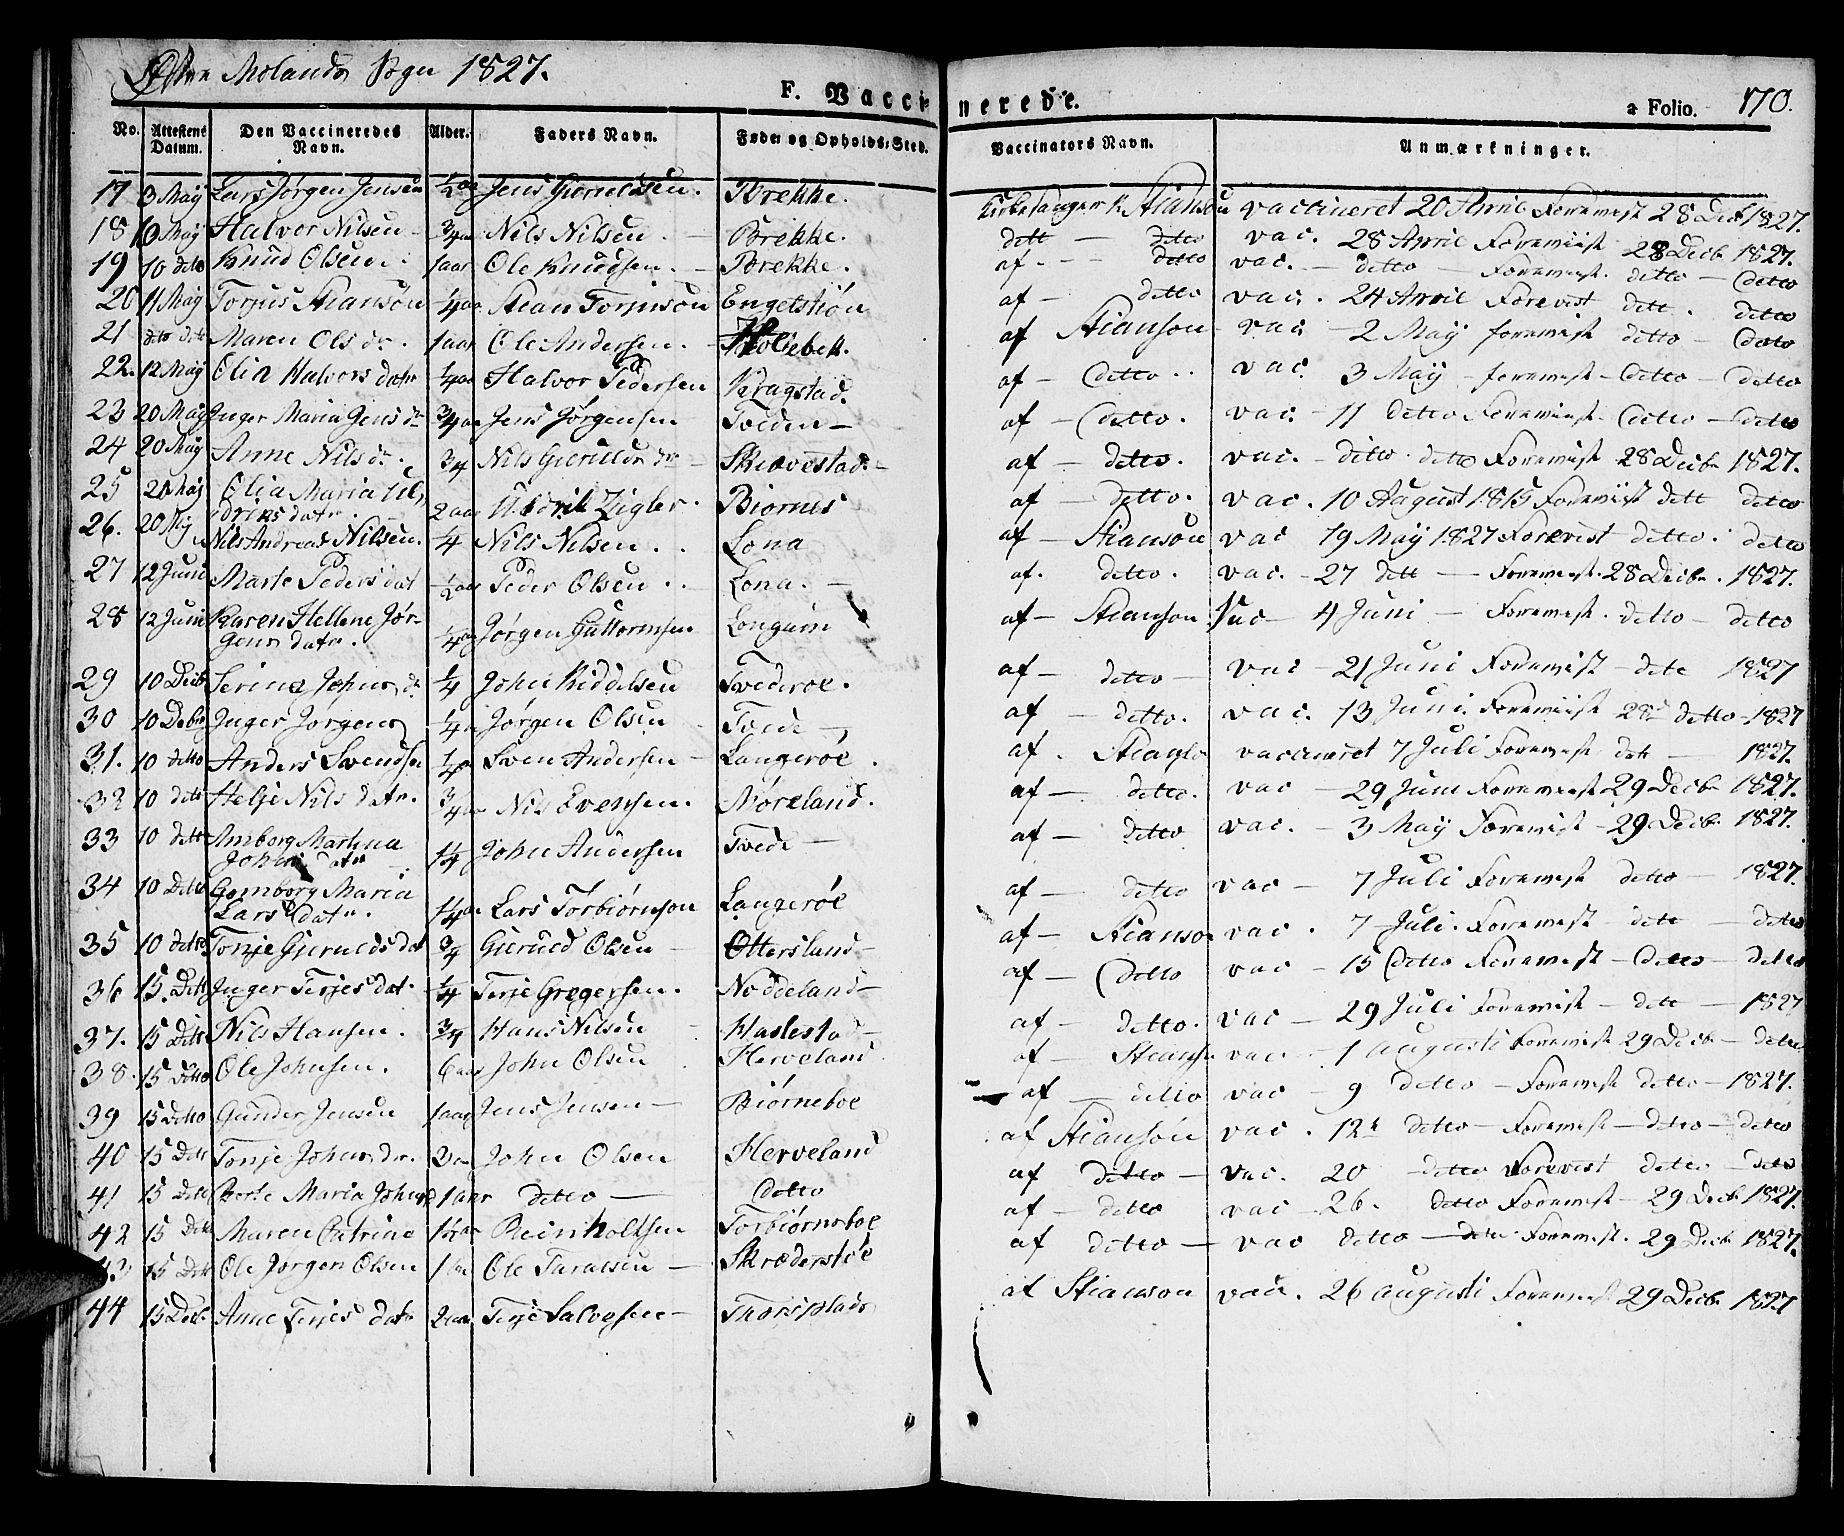 Østre Molands Sogn 1827.
F. Vaccinerede.
a Folio. 170.
No. Attestens Datum. Den Vaccineredes Navn. Alder. Faders Navn. Føde- og Opholds-Sted. Vaccinators Navn. Anmærkninger.
17 3 May Lars Jørgen Jensen 1/2 aar Jens Gieruldsen. Brekke. Kirkesanger Stianson vaccineret 20 April Foreviist 28 Decb 1827.
18 10 May Halvor Nilsen 3/4 aar Nils Nilsen Brekke. dett ditto vac. 28 April Foreviist 28 Decbr 1827.
19 10 detto Knud Olsen 1 aar Ole Knudsen. Brekke. af ditto vac. ditto Foreviist ditto ditto
20 11 May Torjus Stiansøn 1/4 aar Stian Torjusøn af ditto vac. 24 April Forevist dett. ditto
21 Maren Ols dr. 1 aar Ole Andersen. af Stianson vac 2 May foreviist ditto ditto
22. 12 May Olia Halvors datr 1/4 aar Halvor Pedersen Kragstad. af ditto vac. 3 May foreviist ditto ditto
23 20 May Inger Maria Jens dr 3/4 aar Jens Jørgensen Tveden af ditto. vac. 11 detto Foreviist ditto detto
24 20 May Anne Nils dr. 3/4 Nils Skievestad af ditto. vac. ditto ditto Foreviist 28 Decbr 1827.
25 20 May Olia Maria Ul
driks datr. 2 aar Uldrik Zigler. Biørnes af ditto. vac. 10 August 1815 Foreviist dett detto
26. 20 My Nils Andreas Nilsen. 1/4 Nils Nilsen. Lona af Stiansøn vac 19 May 1827 Forevist detto. detto
27 12 Juni Marte Peders dat 1/2 aar Peder Olsen Lona. af. ditto. vac. 27 dett Foreviist. 28 Decbr. 1827.
28 12 Juni Karen Hellene Jør-
gens datr. 1/4 aar Jørgen Guttormsen Longum af Stianson Vac 4 Juni Foreviist. ditto ditto
29 10 Decb Serina Johns dr 1/4 John Kiddelsen Tvederøe. af ditto vac 21 Juni Foreviist dete 1827
30 10 Debr Inger Jørgens 1/4 Jørgen Olsen Tvede af ditto. vac. 13 Juni Foreviist 28d detto 1827
31. 10 detto Anders Svendsen 1/4 Sven Andersen Langerøe. af. Stianso vaccineret 7 Juli Foreviist dett 1827.
32 10 dett Helje Nils datr. 3/4 Nils Evensen. Møreland. af ditto. vac 29 Juni Foreviist 29 Decbr 1827.
33 10 dett Amborg Martina
Johns datr 1 1/4 John Andersen Tvede af ditto vac. 3 May Foreviist 29 Decbr 1827.
34 10 Dett Gomborg Maria
Lars datr. 1 1/4 aar Lars Torbiørnson Langerøe af ditto vac 7 Juli Foreviist ditto 1827.
35 10 dett Tonje Gierulds dat 3/4 Gieruld Olsen Ottersland af Stianso vac. 7 Juli. Foreviist dett ditto
36 15. Dett Inger Terjes dat. 1/4 Terje Gregersen. Noddeland af ditto vac 15 ditto Foreviist ditto ditto
37. 15 Ditto Nils Hansen. 3/4 Hans Nilsen Haslestad af ditto. vac 29 Juli Foreviist dett 1827
38. 15 Ditto Ole Johnsen. 6 aar John Olsen Herveland af Stianso vac. 1 augusti Foreviist 29 Decb ditto
39 15 Detto Gunder Jensen 1 aar Jens Jensen Biørneboe af ditto vac 9 ditto Foreviist ditto 1827.
40 15 Dett Tonje Johns dr. 3 aar John Olsen Herveland af Stiansøn vac. 12te ditto Foreviist ditto ditto
41 15 Dett Berte Maria Johns 1 aar ditto ditto af ditto vac. 20 ditto Forevist detto ditto
42 15 Dett Maren Catrine 1 1/2 aar Reinholtsen Torbiørnsboe af ditto vac 26. ditto Foreviist 29 Decb 1827.
43 15 Dett Ole Jørgen Olsen 1 aar Ole Taralsen Skrederstøe af ditto vac ditto Foreviist. 29 Decb 1827.
44 15 Decb Anne Terjes datr 2 aar Terje Salvesen af Stianson vac. 26 augusti Foreviist 29 Decbr 1827